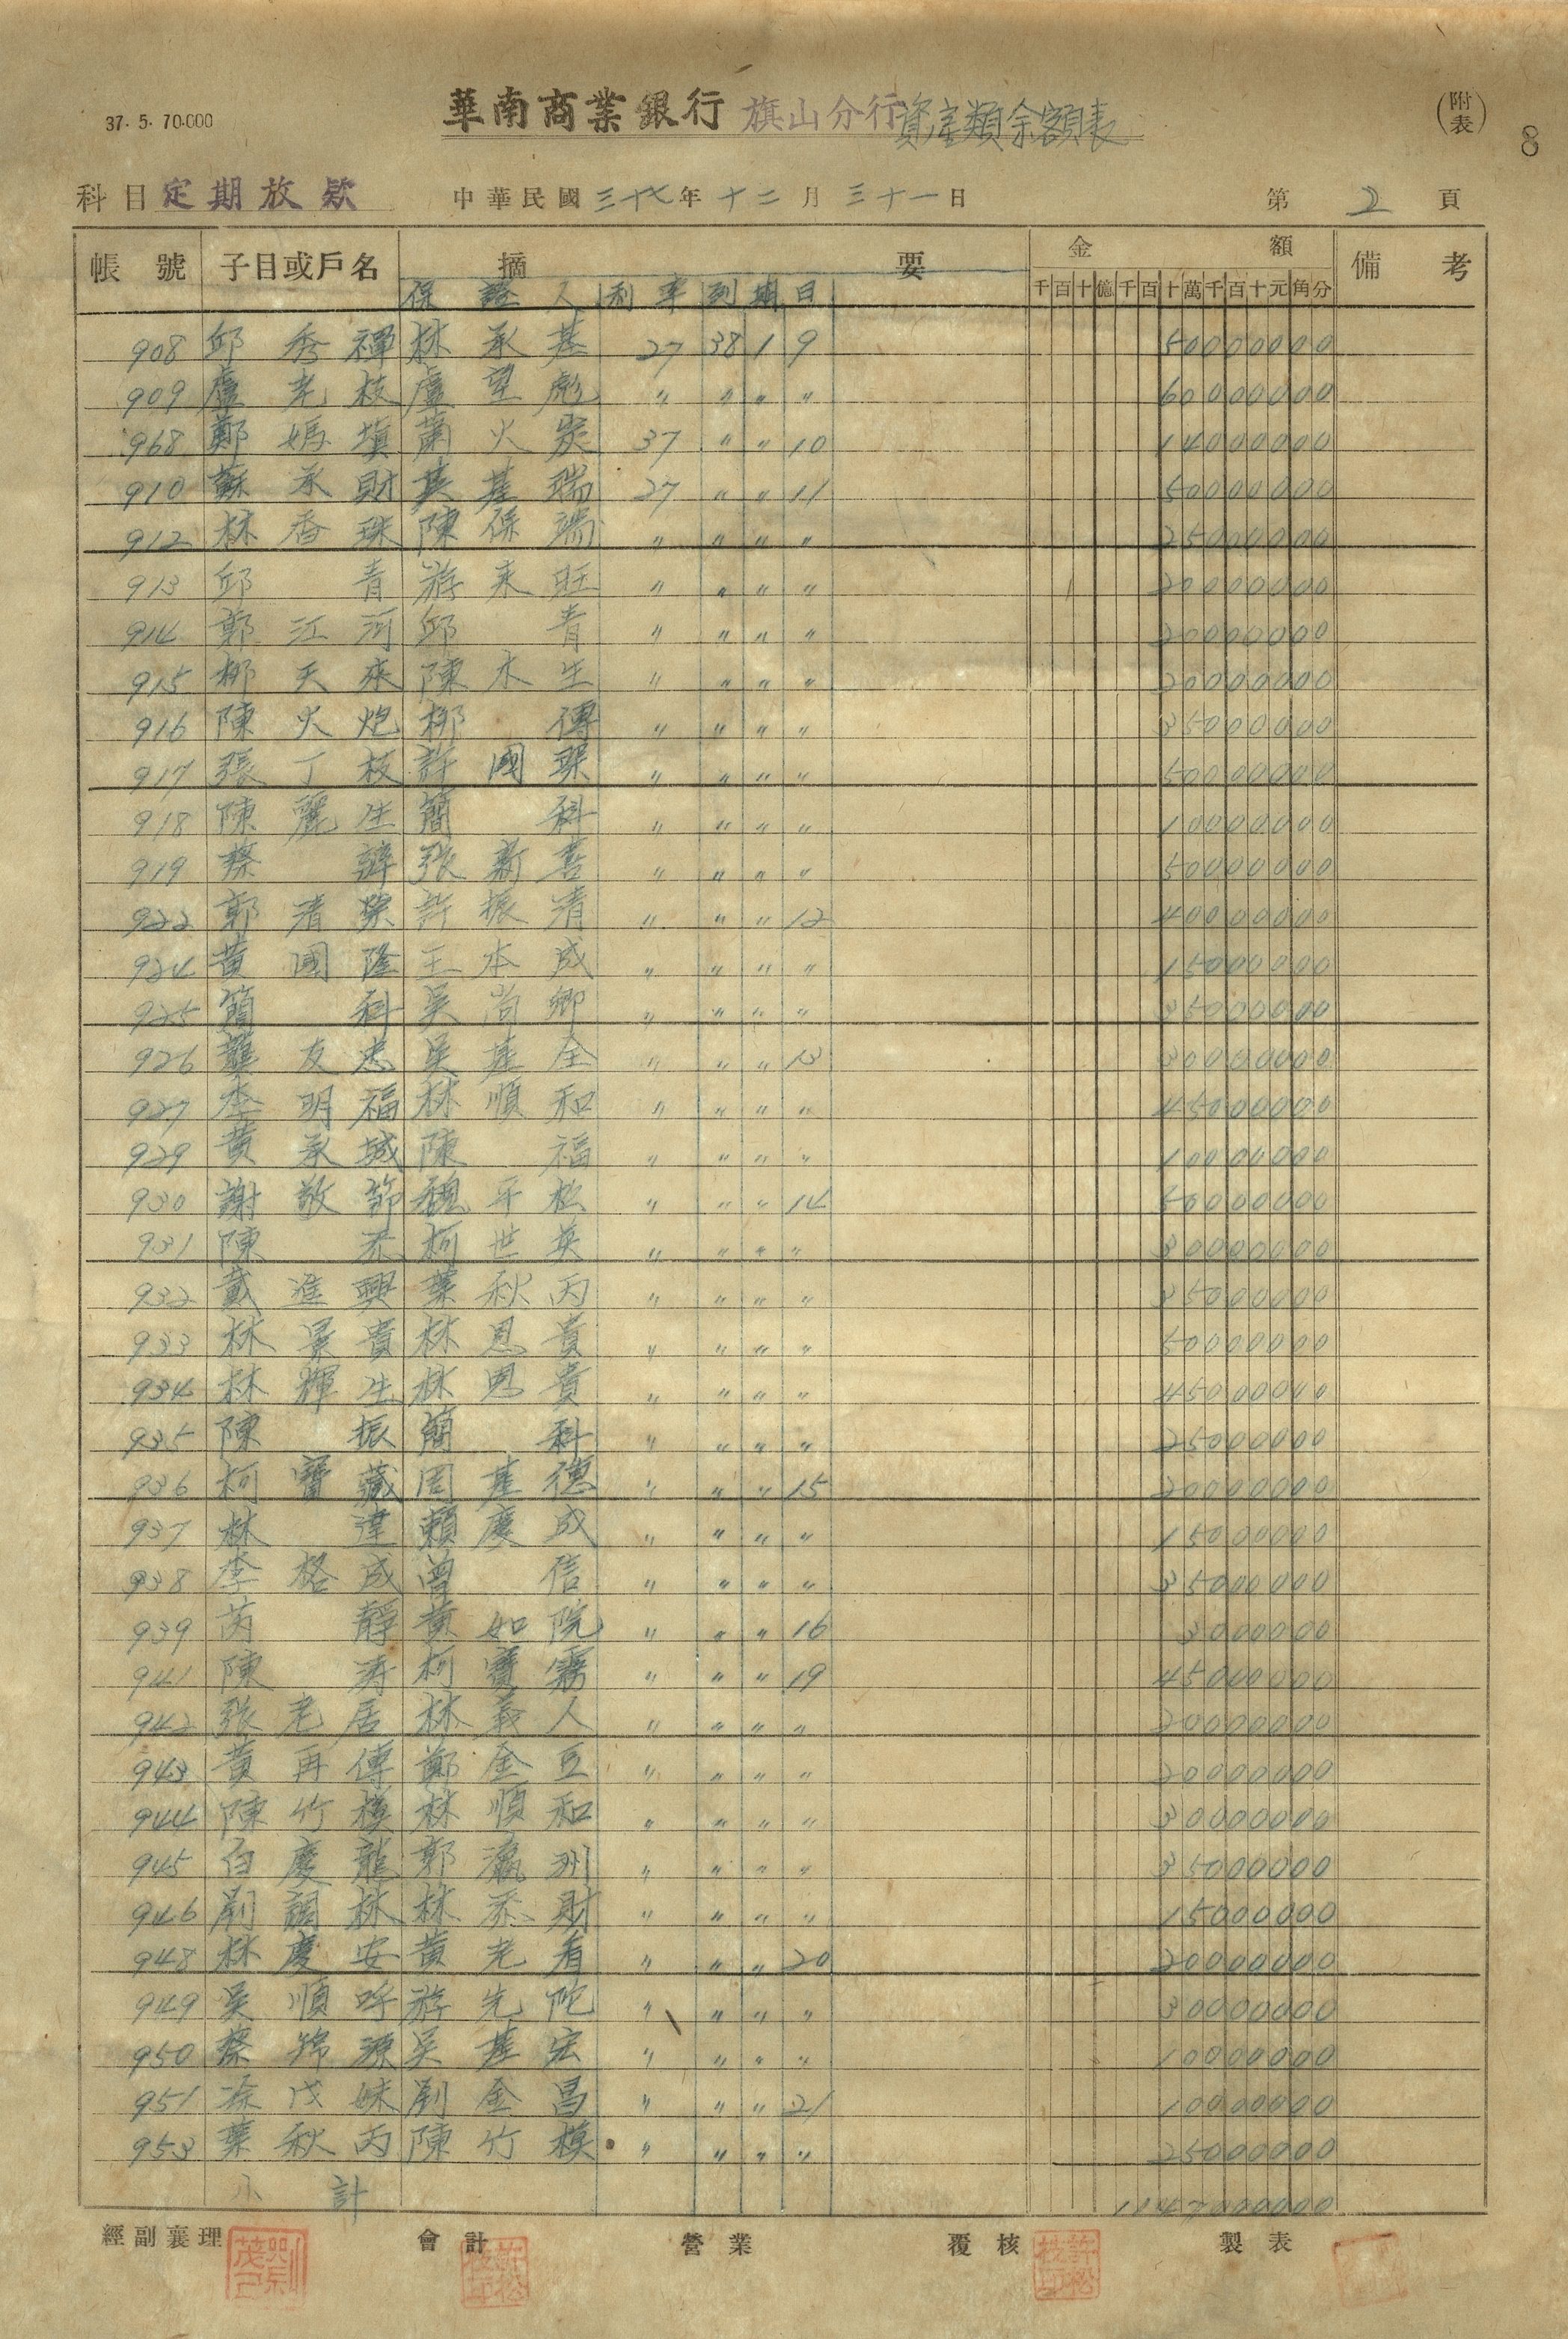 37. 5. 70.000
華南商業銀行 旗山分行資産類余額表
(附表)
8
科目 定期放欵 中華民國三十七年十二月三十一日 第 2 頁
帳號 子目或戶名 摘要 金額 備考
保証人 利率 到期日 千百十億千百十萬千百十元角分
908 邱秀禪 林承基 27 38 1 9 50000000
909 盧老枝 盧望彪 〃 〃 〃 〃 60000000
968 鄭媽填 蕭火炭 37 〃 〃 10 14000000
910 蘇承財 基瑞 27 〃 〃 11 50000000
912 林香珠 陳保瑞 〃 〃 〃 〃 25000000
913 邱青 游来旺 〃 〃 〃 〃 20000000
914 郭江河 邱青 〃 〃 〃 〃 20000000
915 柳天來 陳木生 〃 〃 〃 〃 20000000
916 陳火炮 柳傳 〃 〃 〃 〃 35000000
917 張丁枝 許國琛 〃 〃 〃 〃 50000000
918 陳麗生 簡科 〃 〃 〃 〃 10000000
919 蔡 張新喜 〃 〃 〃 〃 50000000
922 郭清榮 許振清 〃 〃 〃 12 40000000
924 黃國隆 王本成 〃 〃 〃 〃 15000000
925 簡科 吳尚卿 〃 〃 〃 〃 35000000
926 龔友忠 吳基全 〃 〃 〃 13 30000000
927 李明福 林順和 〃 〃 〃 〃 45000000
929 黃承城 陳福 〃 〃 〃 〃 10000000
930 謝敬節 魏平松 〃 〃 〃 14 50000000
931 陳 柯世英 〃 〃 〃 〃 30000000
932 戴進興 葉秋丙 〃 〃 〃 〃 35000000
933 林景貴 林恩貴 〃 〃 〃 〃 50000000
934 林輝生 林恩貴 〃 〃 〃 〃 45000000
935 陳振 簡科 〃 〃 〃 〃 25000000
936 柯寶藏 周基德 〃 〃 〃 15 20000000
937 林達 賴慶成 〃 〃 〃 〃 15000000
938 李格成 曾信 〃 〃 〃 〃 35000000
939 芮靜 黃如院 〃 〃 〃 16 3000000
941 陳涛 柯寶 〃 〃 〃 19 45000000
942 張老居 林義人 〃 〃 〃 〃 20000000
943 黃再傳 鄭金豆 〃 〃 〃 〃 20000000
944 陳竹模 林順和 〃 〃 〃 〃 30000000
945 白慶龍 郭瀛洲 〃 〃 〃 〃 35000000
946 劉調林 林添財 〃 〃 〃 〃 15000000
948 林慶安 黃老看 〃 〃 〃 20 20000000
949 吳順呼 游先陀 〃 〃 〃 〃 30000000
950 蔡錦源 吳基宏 〃 〃 〃 〃 10000000
951 涂戊妹 劉金昌 〃 〃 〃 21 10000000
953 葉秋丙 陳竹模 〃 〃 〃 〃 25000000
小計 1147000000
經副襄理 會計 營業 覆核 製表